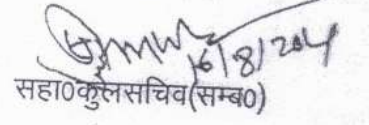 16/8/204
सहा0कुलसचिव(सम्ब0)